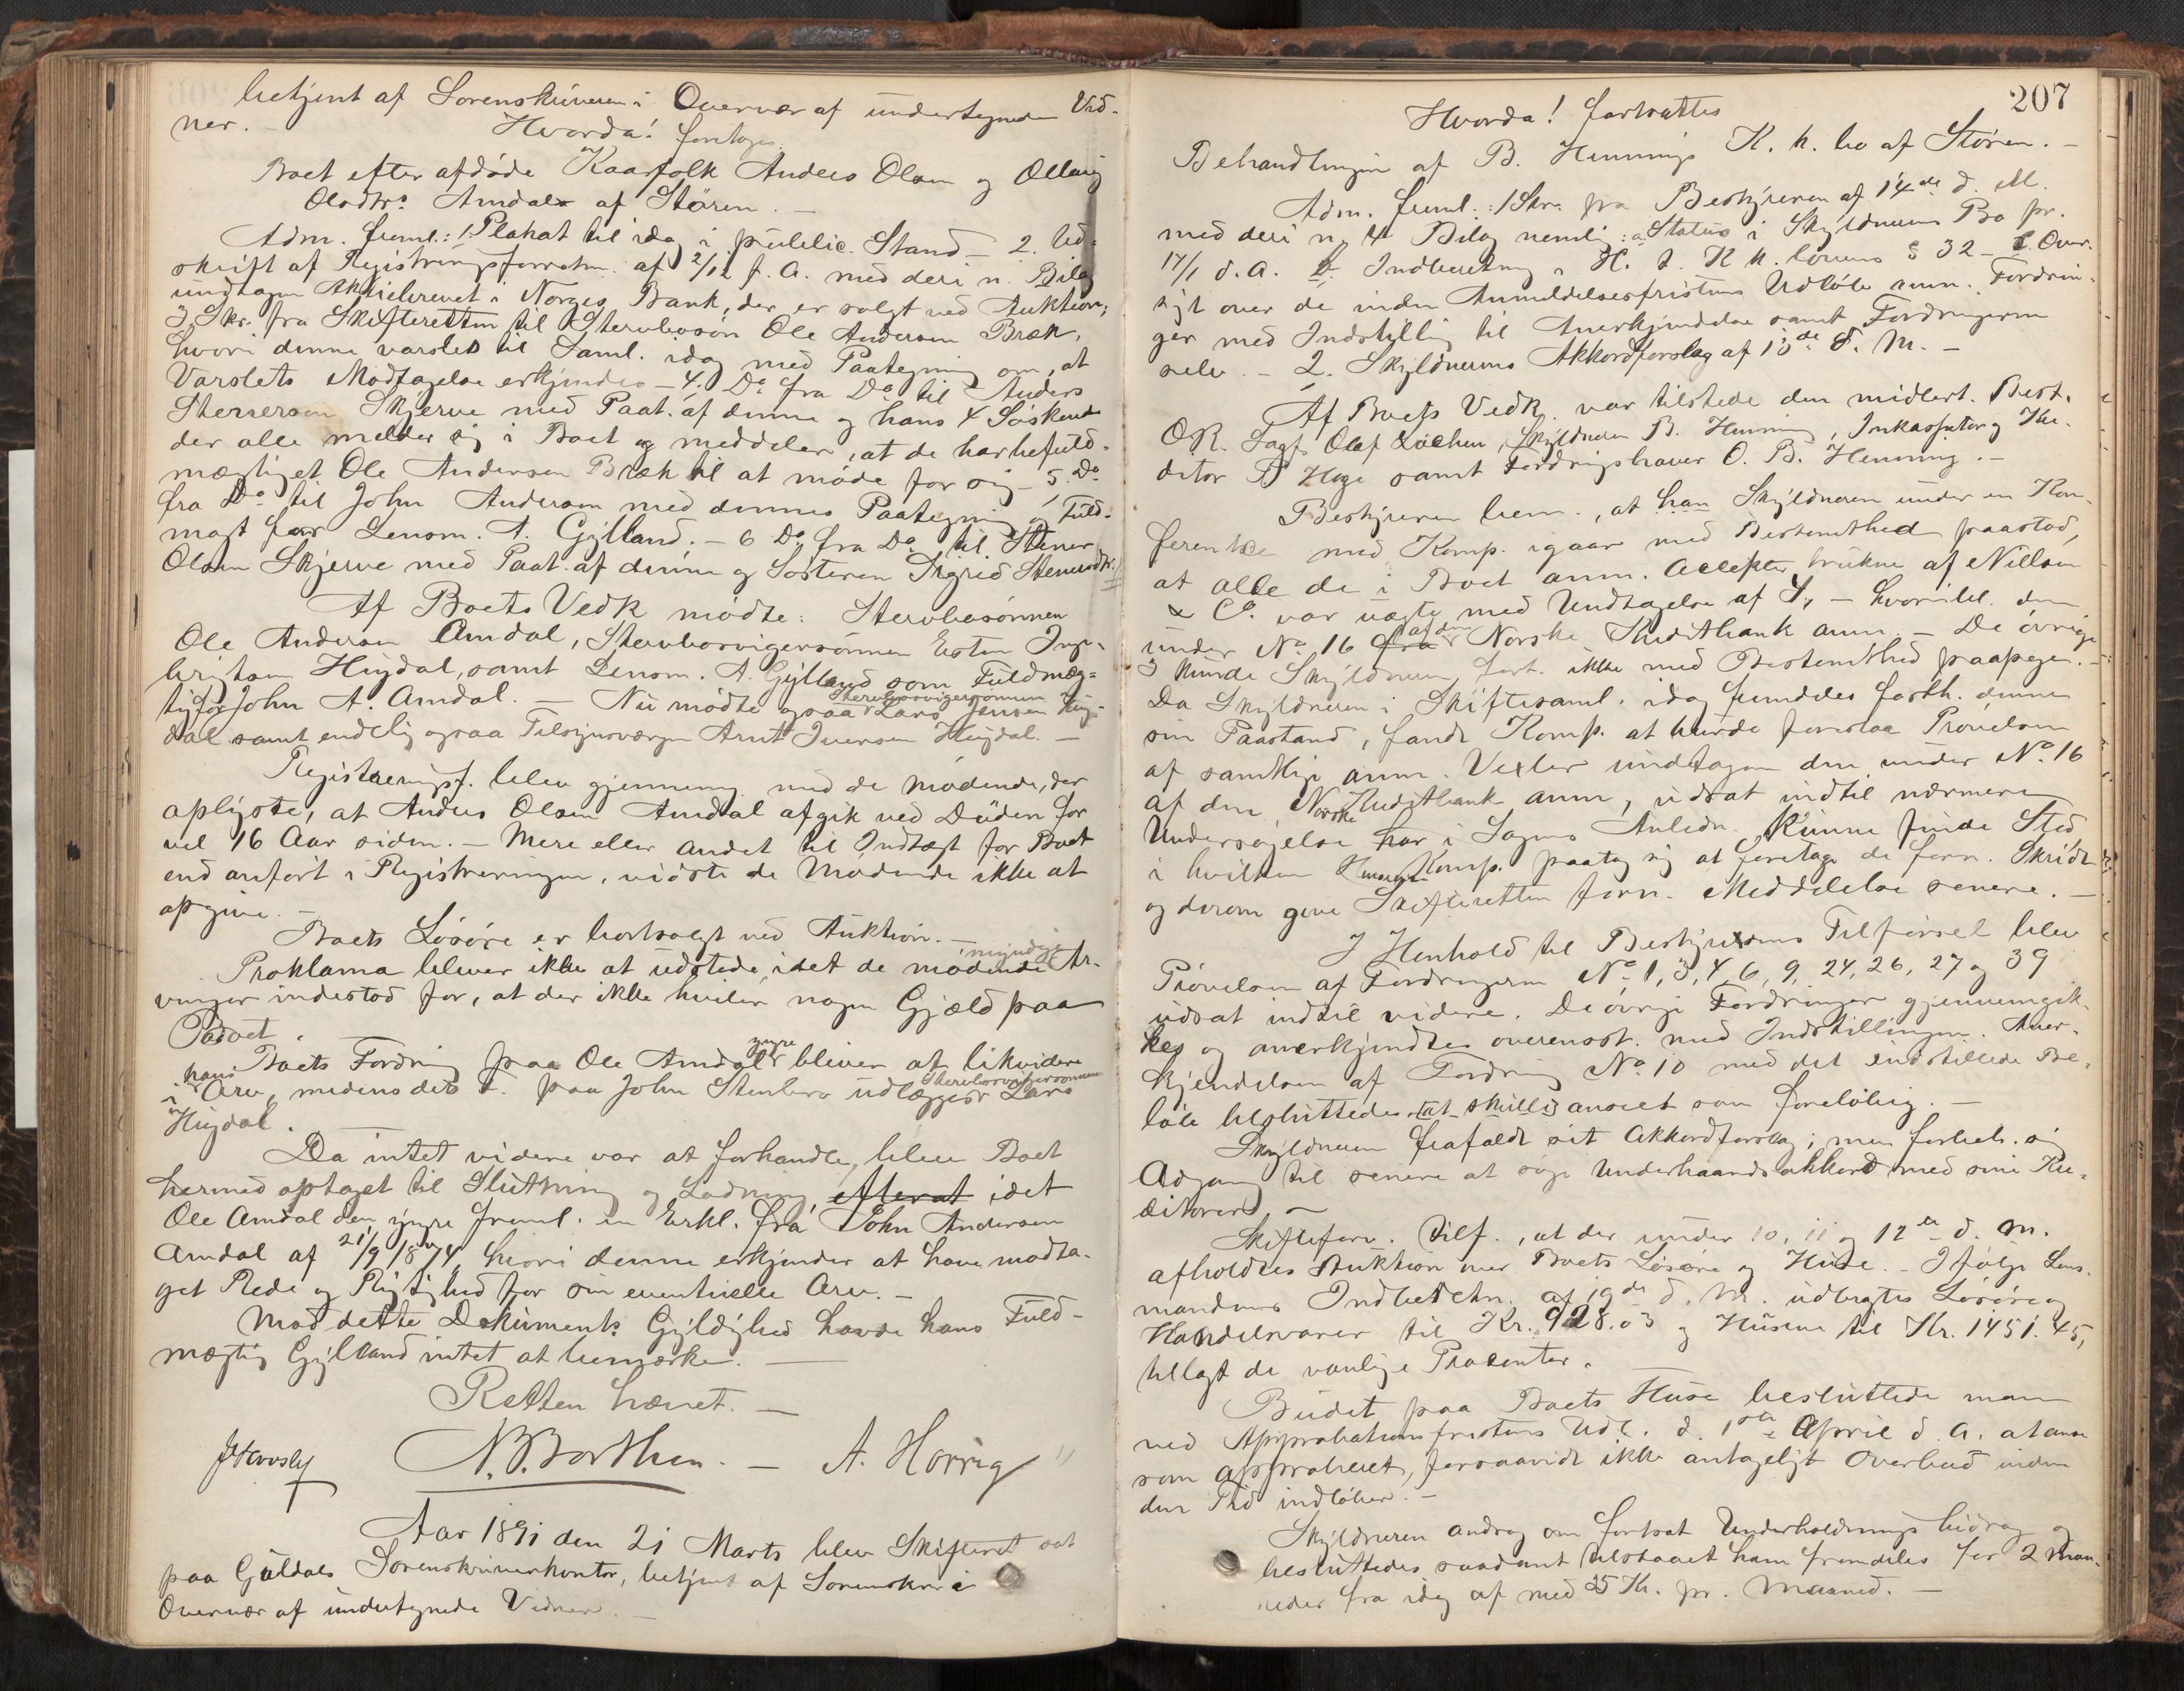 betjent af Sorenskriveren i Overvær af undertegnede Vid-
ner. -
Hvorda! foretoges
Boet efter afdøde Kaarfolk Anders Olsen og Ollaug
Olsdtr. Amdal af Støren. -
Adm. freml.: 1. Plakat til idag i publie. Stand - 2. Ud-
skrift af Registreringsforretn. af 2/12 f. A. med deri n. Bilag
undtagen Aktiebrevet i Norges Bank, der er solgt ved Auktion;
3 Skr. fra Skifteretten til Stervbosøn Ole Andersen Bræk,
hvori denne varsles til Saml. idag med Paategning om, at
Varslets Modtagelse erkjendes - 4. Do fra Do til Anders
Skjerve med Paat. af denne og hans 4 Søskende
der alle melder sig i Boet og meddeler, at de har befuld-
mægtiget Ole Andersen Bræk til at møde for sig - 5. Do
fra Do til John Andersen med dennes Paategning og Fuld-
magt for Lensm. A. Gylland. - 6 Do fra Do til Stener
Olsen Skjerve med Paat. af denne og Søsteren Sigrid Stenersdtr.
Af Boets Vedk mødte: Stervbosønnen
Ole Andersen Amdal, Stervbosvigersønnen Esten Inge-
brigtsen Hugdal, samt Lensm. A. Gylland som Fuldmæg-
tig for John A. Amdal. - Nu mødte ogsaa Stervbosvigersønnen Lars Jensen Hug-
dal samt endelig ogsaa Tilsynsværgen Arnt Iversen Hugdal. -
Registreringsf. blev gjennemg. med de Mødende, der
oplyste, at Anders Olsen Amdal afgik ved Døden for
vel 16 Aar siden. - Mere eller andet til Indtægt for Boet
end anført i Registreringen, vidste de Mødende ikke at
opgive. -
Boets Løsøre er bortsolgt ved Auktion. -
Proklama bliver ikke at udstede, idet de mødende myndige Ar-
vinger indestod for, at der ikke hviler nogen Gjæld paa
Boet.
Boets Fordring paa Ole Amdal yngre bliver at likvidere
i hans Arv, medens dets F. paa John Stenbro udlægges Stervbosvigersønnen Lars
Hugdal. -
Da intet videre var at forhandle, blev Boet
hermed optaget til Slutning og Lodning, efterat idet
Ole Amdal den yngre freml. en Erkl. fra John Andersen
Amdal af 21/9 1874, hvori denne erkjender at have modta-
get Rede og Rigtighed for sin eventuelle Arv. -
Mod dette Dokuments Gyldighed havde hans Fuld-
mægtig Gylland intet at bemærke. -
Retten hævet. -
N. B. Borthen. - A. Hørrig
Aar 1891 den 21 Marts blev Skifteret sat
paa Guldals Sorenskriverkontor, betjent af Sorenskr. i
Overvær af undertegnede Vidner. -
207
Hvorda! fortsattes
Behandlingen af B. Hennings K. k. bo af Støren. -
Adm. freml.: 1 Skr. fra Bestyreren af 14de d. M.
med deri n. 4 Bilag nemlig: a Status i Skyldnerens Bo pr.
17/1 d. A. b. Indberetning i H. t. K k. lovens § 32 - c Over-
sigt over de inden Anmeldelsesfristens Udløb anm. Fordrin-
ger med Indstilling til Anerkjendelse samt Fordringerne
selv. - 2. Skyldnerens Akkordforslag af 13de d. M. -
Af Boets Vedk. var tilstede den midlert. Best.
OR. Sagf. Olaf Lochen, Skyldneren B. Henning, Inkassator og Kre-
ditor Hage samt Fordringshaver O. B. Henning. -
Bestyreren bem., at han Skyldneren under en Kon-
ferentse med Komp. igaar med Bestemthed paastod,
at alle de i Boet anm. Accepter trukne af Nillson
& Co. var uægte med Undtagelse af 4, - hvoriblt. den
under No 16 fra af den Norske Kreditbank anm. - De øvrige
3 kunde Skyldneren fort. ikke med Bestemthed paapege. -
Da Skyldneren i Skiftesaml. idag fremdeles fasth. denne
sin Paastand, fandt Komp. at burde foreslaa Prøvelsen
af samtlige anm. Vexler undtagen den under No 16
af den Norske Kreditbank anm., udsat indtil nærmere
Undersøgelse har i Sagens Anledn. kunne finde Sted
i hvilken Komp. paatog sig at foretage de forn. Skridt
og derom give Skifteretten forn. Meddelelse senere. -
I Henhold til Bestyrerens Tilførsel blev
Prøvelsen af Fordringerne No 1, 3, 4, 6, 9, 24, 26, 27 og 39
udsat indtil videre. De øvrige Fordringer gjennemgik-
kes og anerkjendtes overensst. med Indstillingen. Aner-
kjendelsen af Fordring No 10 med det indstillede Be-
løb besluttedes at skulle anseet som foreløbig. -
Skyldneren frafaldt sit Akkordforslag; men forbeh. sig
Adgang til senere at søge Underhaandsakkord med sine Kre-
ditorer. -
Skifteforv. tilf., at der under 10, 11 og 12te d. M.
afholdtes Auktion over Boets Løsøre og Huse. - Ifølge Lens-
mandens Indberetn. af 19de d. M. udbragtes Løsøre og
Handelsvarer til Kr. 928.03 og Husene til Kr. 1451.45,
tillagt de vanlige Procenter.
Budet paa Boets Huse besluttede man
ved Approbationsfristens Udl. d. 1ste April d. A. at anse
som approberet, forsaavidt ikke antageligt Overbud inden
den Tid indløber. -
Skyldneren androg om fortsat Underholdnings bidrag og
besluttedes saadant tilstaaet ham fremdeles for 2 Maa-
neder fra idag af med 25 Kr. pr. Maaned. -